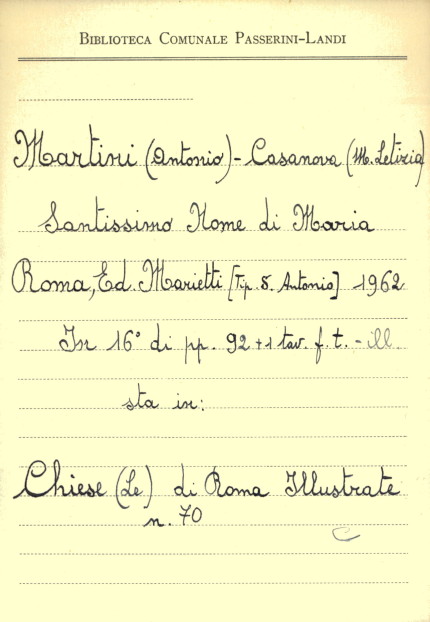 Biblioteca Comunale Passerini-Landi
Martini (Antonio) - Casanova (M. Letizia)
Santissimo Nome di Maria
Roma, Ed. Marietti [Tip. S. Antonio] 1962
In 16° di pp. 92 + 1 tav. f. t. - ill.
sta in:
Chiese (Le) di Roma Illustrate
n. 70
C